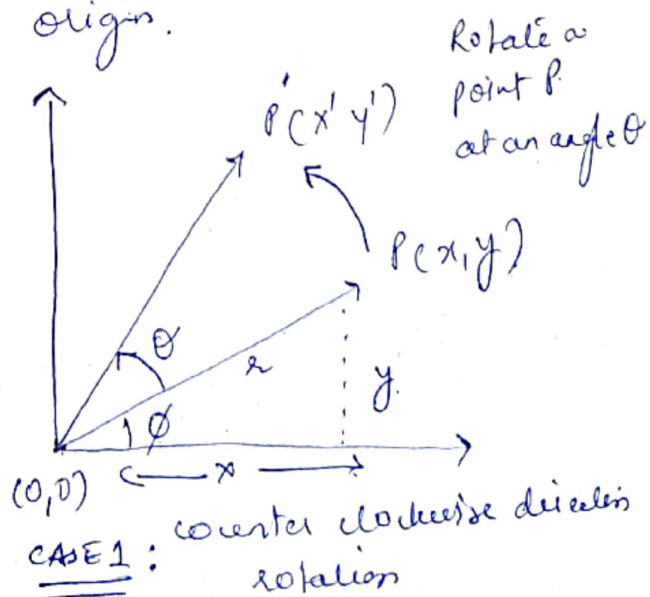 origin.
Rotate a
point P.
at an angle θ
P'(x' y')
P(x, y)
θ
r
y.
φ
(0,0)
x
CASE 1 : counter clockwise direction
rotation